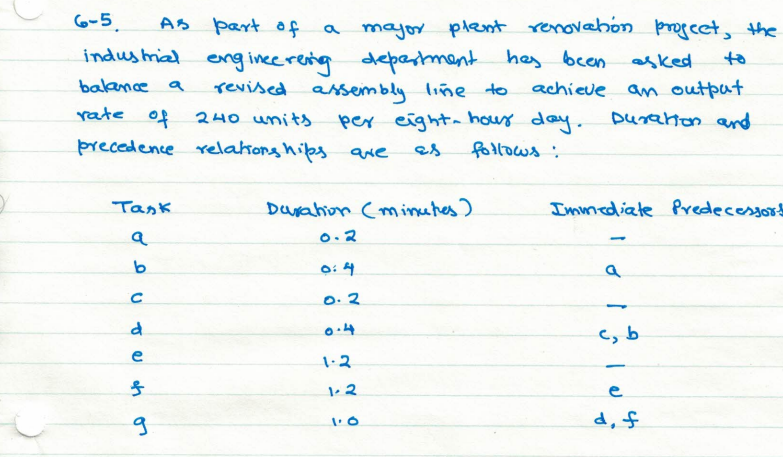 6-5. As part of a major plant renovation project, the
industrial engineering department has been asked to
balance a revised assembly line to achieve an output
rate of 240 units per eight-hour day. Duration and
precedence relationships are as follows :
Task Duration (minutes) Immediate Predecessors
a 0.2 —
b 0.4 a
c 0.2 —
d 0.4 c, b
e 1.2 —
f 1.2 e
g 1.0 d, f